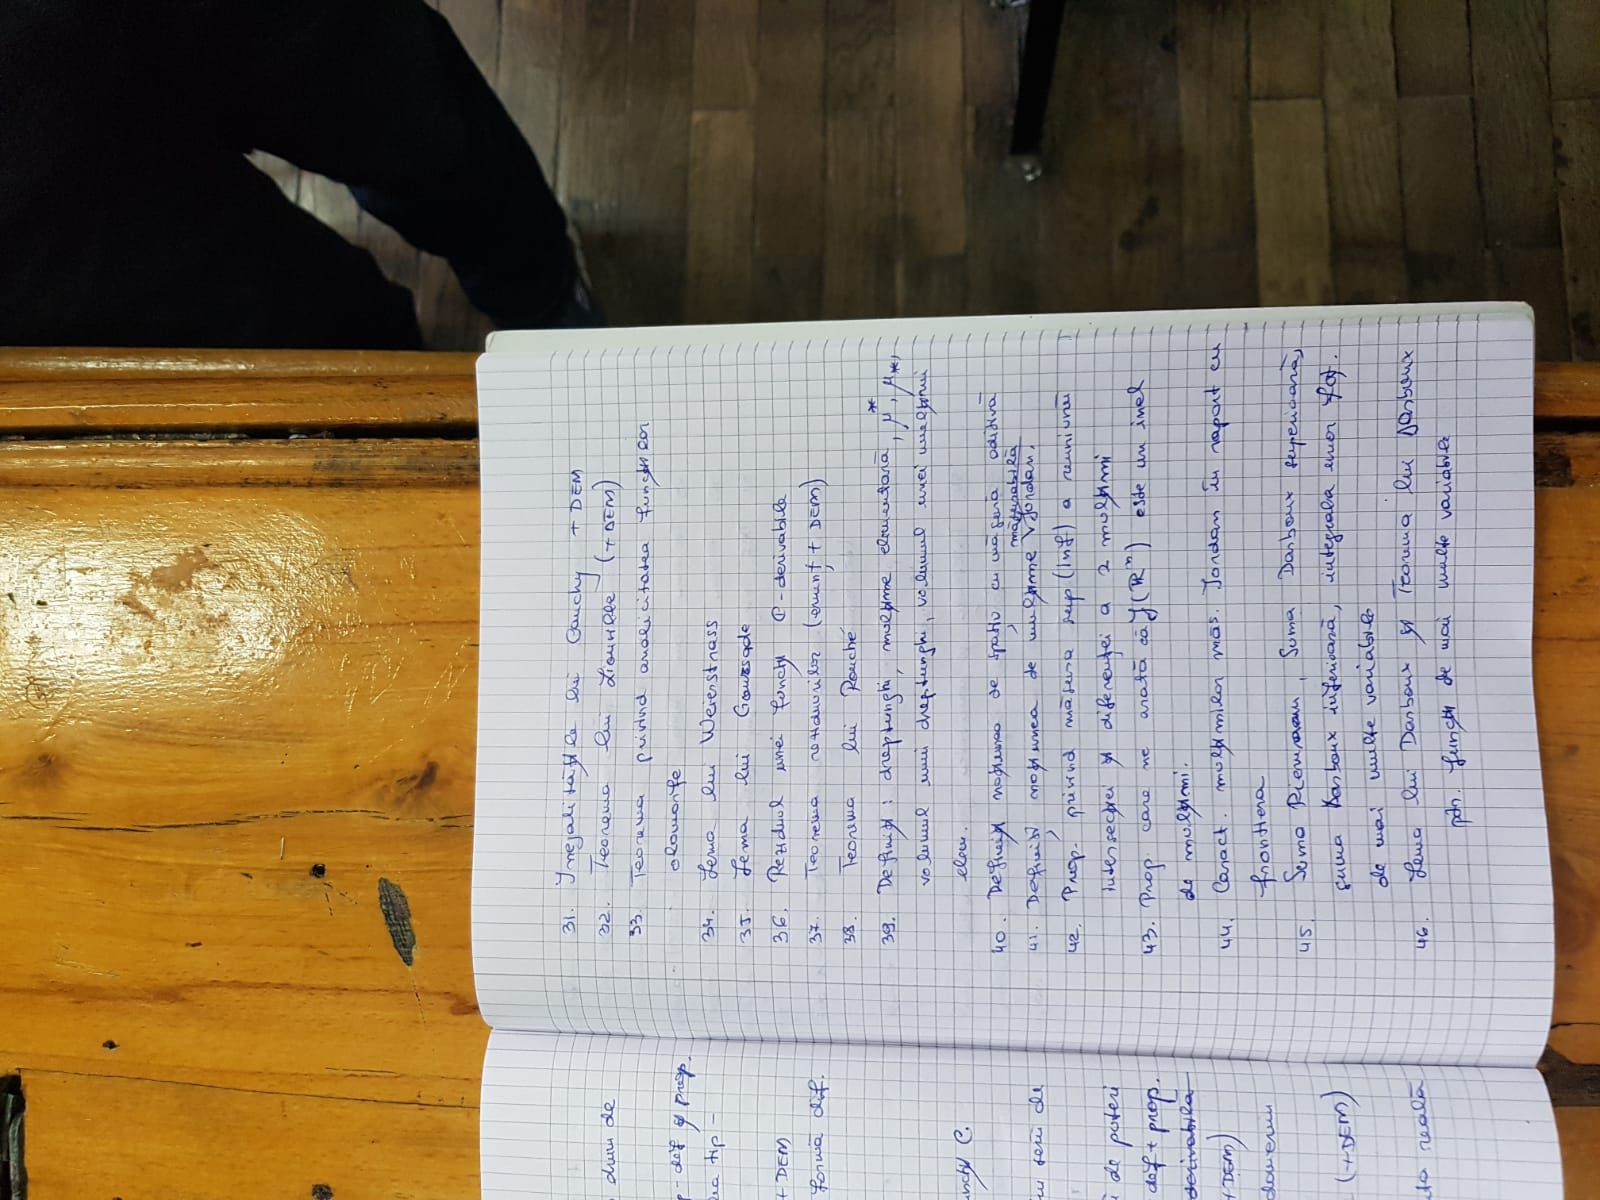 drum de
- def și prop.
tip -
+ DEM
formă dif.
C.
serii de
de puteri
def + prop.
derivabila
+ DEM)
(+DEM)
reală
31. Inegalitățile lui Cauchy + DEM
32. Teorema lui Liouville (+DEM)
33. Teorema privind analicitatea funcțiilor
olomorfe
34. Lema lui Weierstrass
35. Lema lui Goursade
36. Reziduul unei funcții C-derivabile
37. Teorema reziduurilor (enunț + DEM)
38. Teorema lui Rouché
39. Definiții: dreptunghi, mulțime elementară, μ*, μ*,
volumul unui dreptunghi, volumul unei mulțimi
elem.
40. Definiți noțiunea de spațiu cu măsură aditivă
41. Definiți noțiunea de mulțime măsurabilă Jordan.
42. Prop. privind măsura sup (inf) a reuniunii
intersecției și diferenței a 2 mulțimi
43. Prop. care ne arată că J(ℝⁿ) este un inel
de mulțimi.
44. Caract. mulțimilor măs. Jordan în raport cu
frontiera
45. Suma Riemann, Suma Darboux superioară,
suma Darboux inferioară, integrala unor
de mai multe variabile
46. Lema lui Darboux și Teorema lui Darboux
ptr. funcții de mai multe variabile